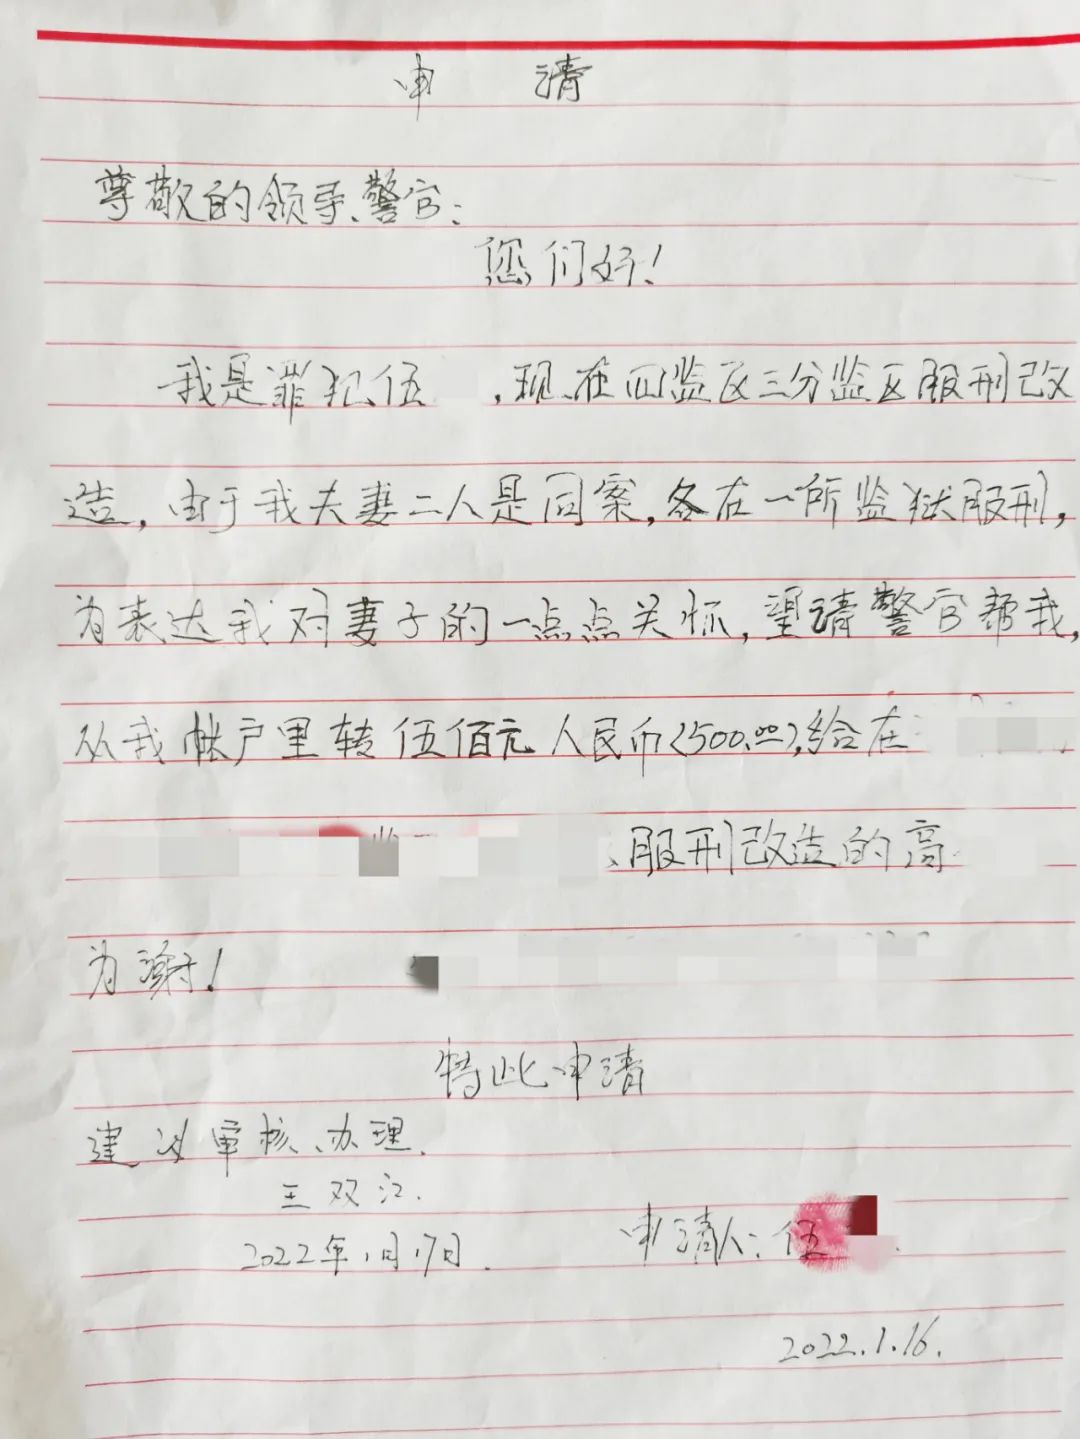 申 请
尊敬的领导、警官：
您们好！
我是罪犯伍 ，现在四监区三分监区服刑改
造，由于我夫妻二人是同案，各在一所监狱服刑，
为表达我对妻子的一点点关怀，望请警官帮我，
从我帐户里转伍佰元人民币（500.00），给在
服刑改造的高
为谢！
特此申请
建议审核、办理.
王双江.
2022年1月17日.
申请人：伍
2022.1.16.